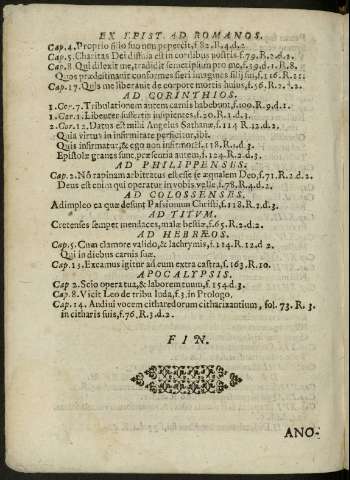 EX EPIST. AD ROMANOS.
Cap.4. Proprio filio suo non pepercit, f.82. R.4.d.2.
Cap.5. Charitas Dei diffusa est in cordibus nostris. f.79. R.2.d.2.
Cap.8. Qui dilexit me, tradidit semetipsum pro me, f.39.d.1. R.8.
Quos prædestinavit conformes fieri imagines filij sui, f.116. R.11.
Cap.17. Quis me liberavit de corpore mortis huius, f.56. R.2.
AD CORINTHIOS.
1. Cor.7. Tribulationem autem carnis habebunt, f.100. R.9.d.1.
1. Cor.1. Libenter suffertis insipientes, f.20. R.1.d.3.
2. Cor.12. Datus est mihi Angelus Sathanæ, f.114 R.12.d.2.
Quia virtus in infirmitate perficitur, ibi.
Quis infirmatur, & ego non infirmor? f.118. R.1.d.3.
Epistolæ graves sunt, præsentia autem, f.124. R.2.d.3.
AD PHILIPPENSES.
Cap.2. Nõ rapinam arbitratus est esse se æqualem Deo, f.71. R.2.d.2.
Deus est enim qui operatur in vobis velle, f.78. R.4.d.2.
AD COLOSSENSES.
Adimpleo ea quæ desunt Passionum Christi, f.118. R.3.d.3.
AD TITVM.
Cretenses semper mendaces, malæ bestiæ, f.65. R.2.d.2.
AD HEBRÆOS.
Cap.5. Cum clamore valido, & lachrymis, f.114. R.12.d 2.
Qui in diebus carnis suæ.
Cap.13. Exeamus igitur ad eum extra castra, f.163. R.10.
APOCALYPSIS.
Cap 2. Scio opera tua, & laborem tuum, f.154.d.3.
Cap.8. Vicit Leo de tribu Iuda, f.3. in Prologo.
Cap.14. Audivi vocem citharedorum citharizantium, fol. 73. R. 3.
in citharis suis, f.76. R.3.d.2.
F I N.
ANO-